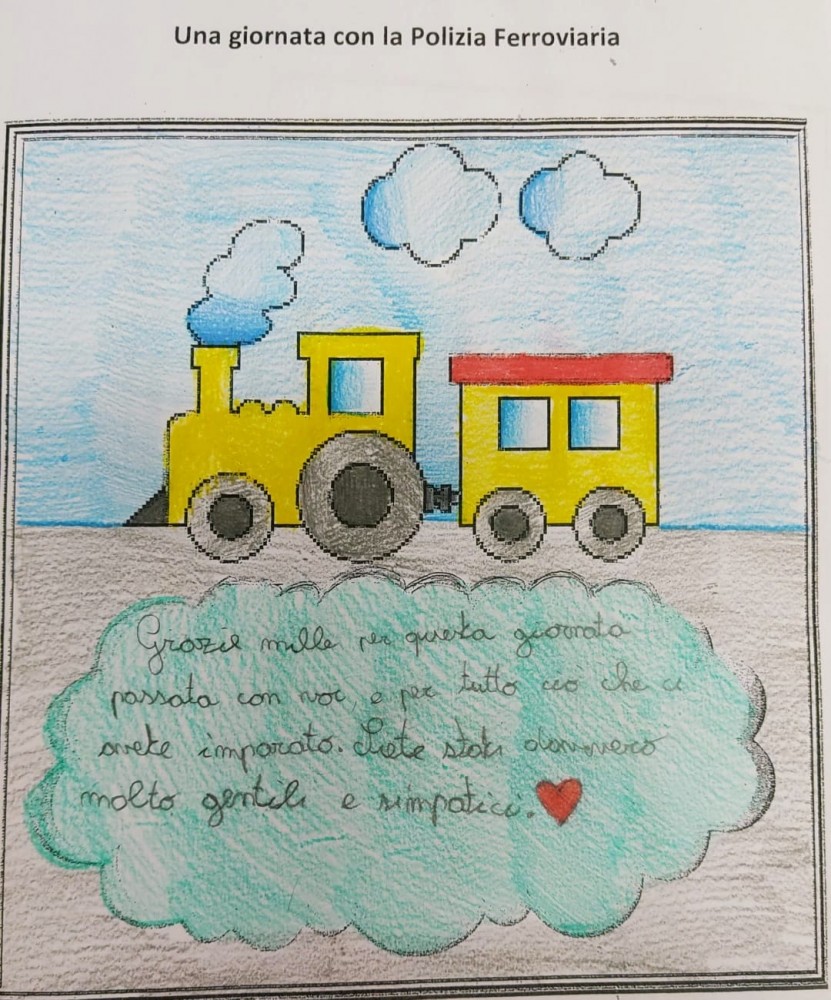 Una giornata con la Polizia Ferroviaria
Grazie mille per questa giornata
passata con voi, e per tutto ciò che ci
avete imparato. Siete stati davvero
molto gentili e simpatici.